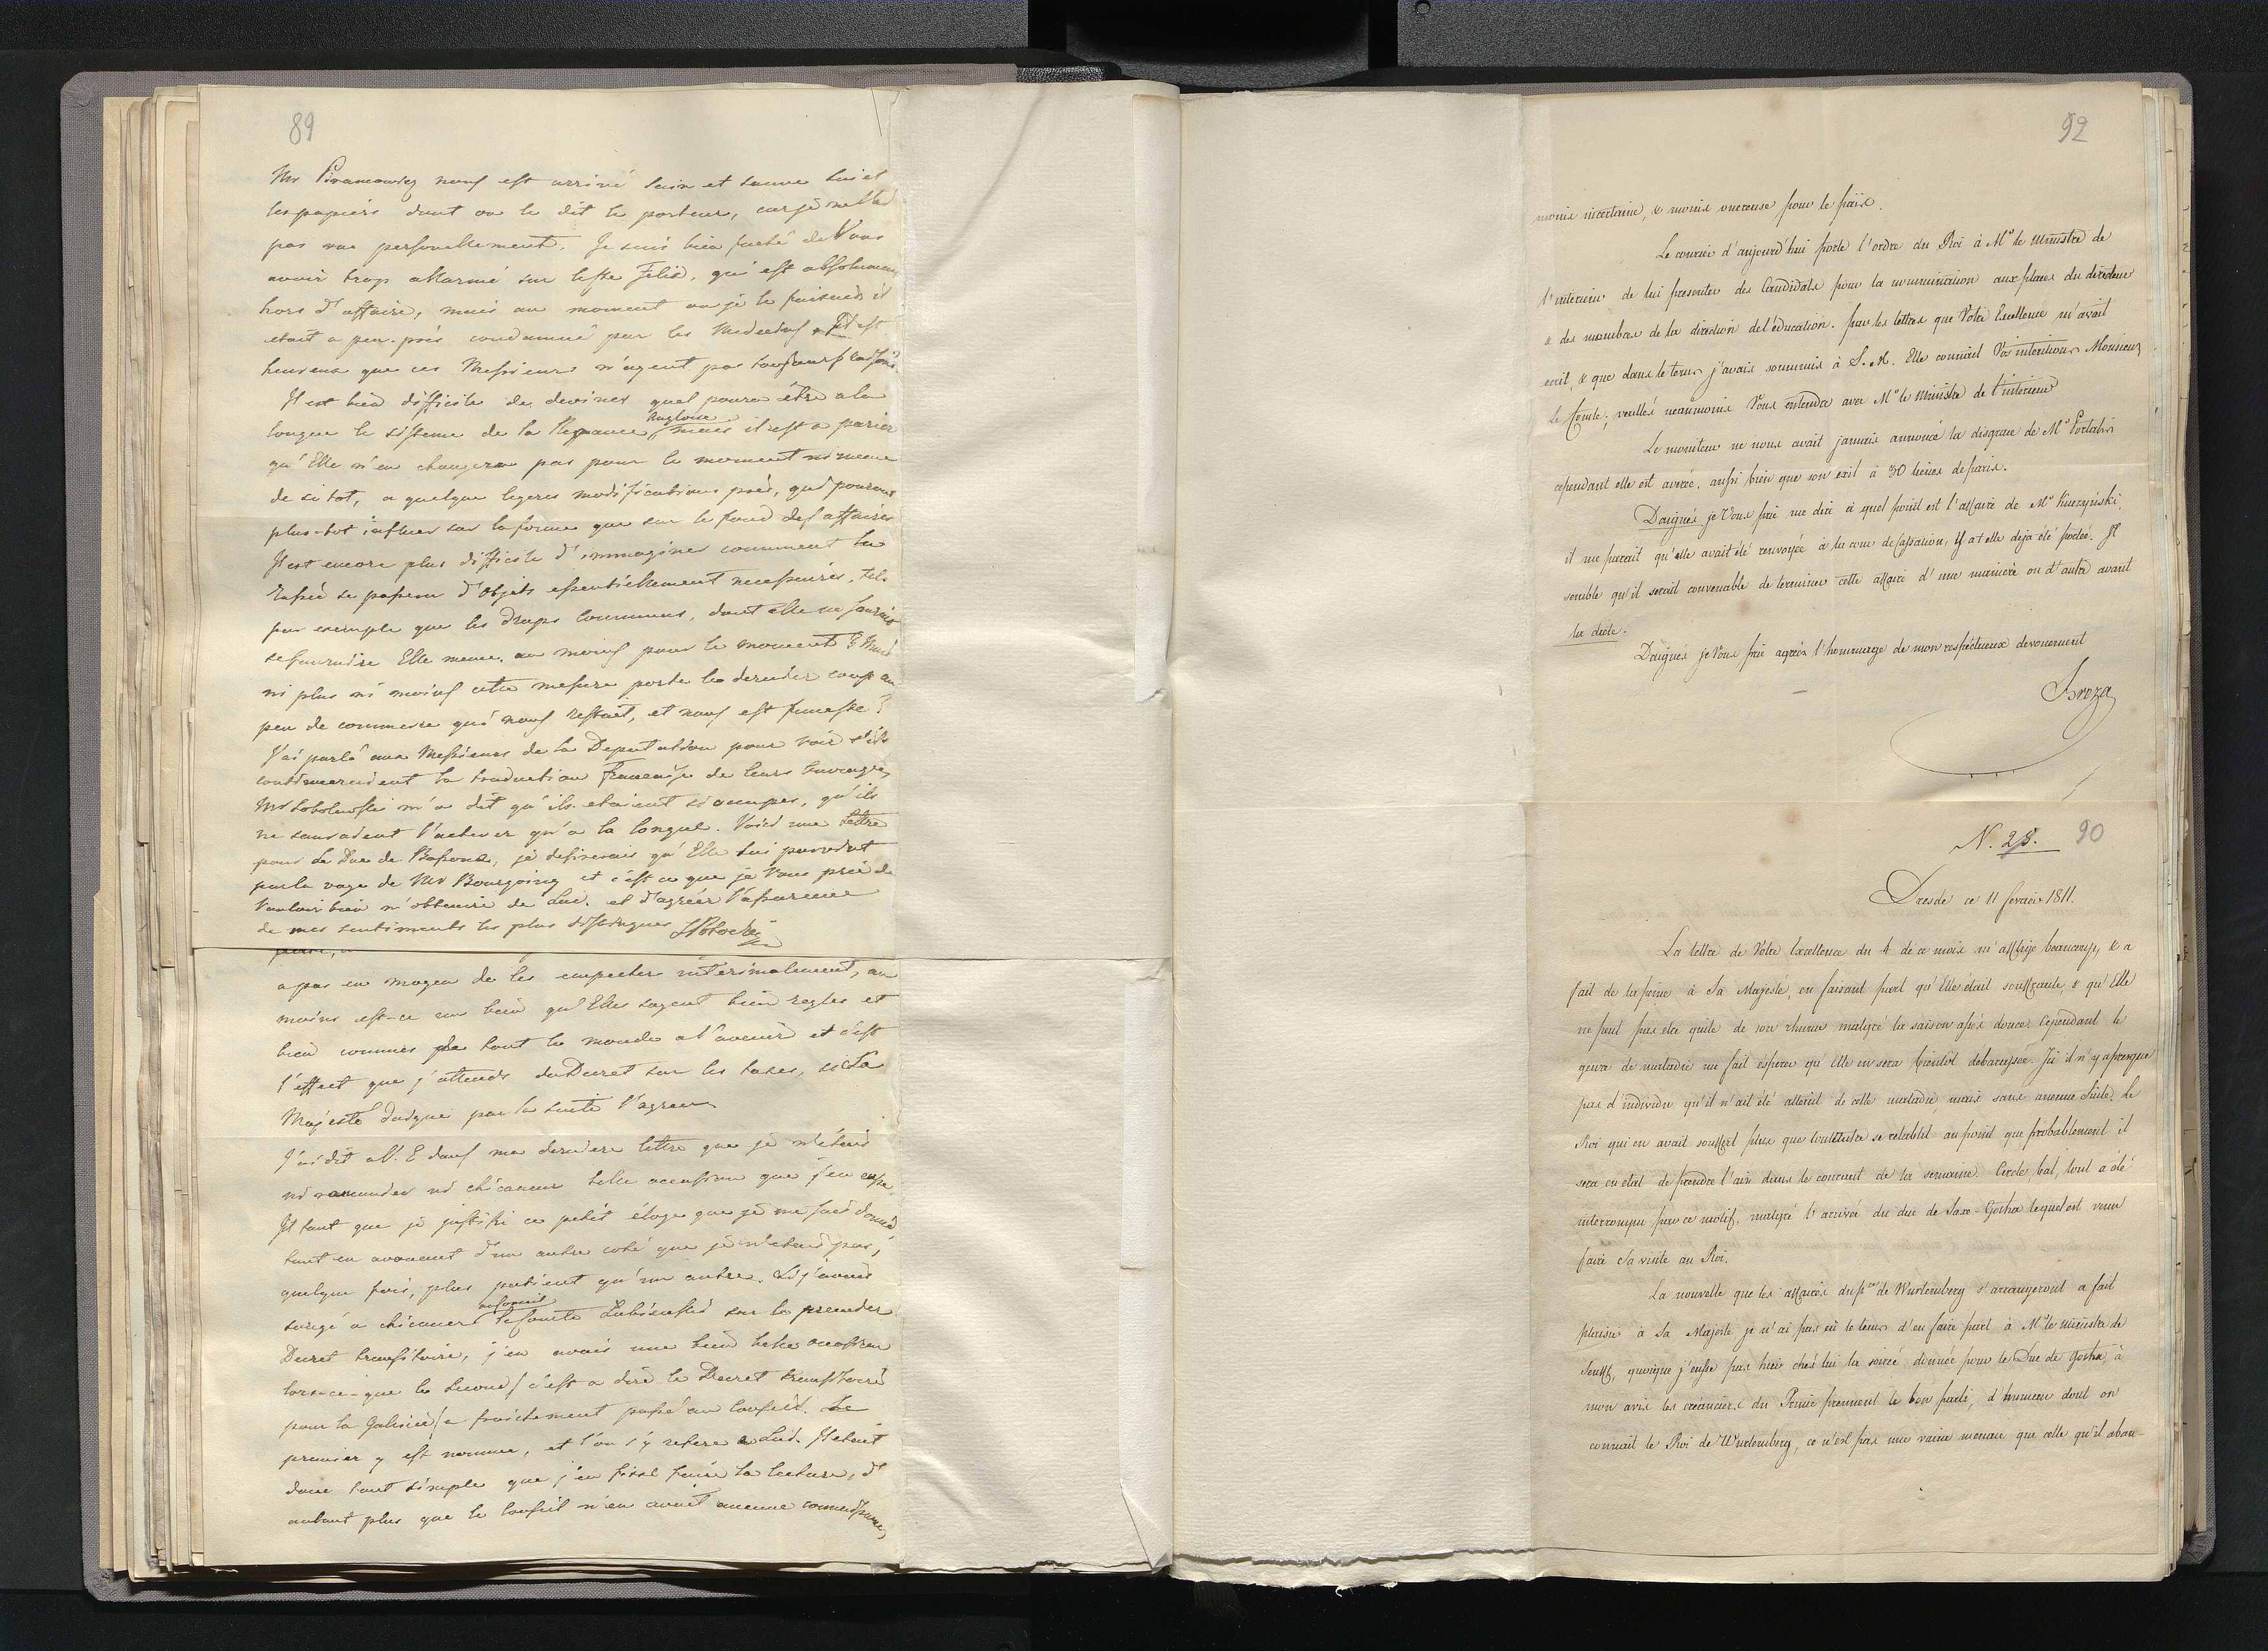 89
Mr Piramowicz nous est arrivé sain et sauve lui et
les papiers dont on le dit le porteur, car je ne l'ai
pas vue personellement. Je suis bien faché de Vous
avoir trop allarmé sur l'Felix, qui est absolument
hors d'affaire, mais au moment ou je le faisais il
etait a peu-près condamné par les Medecins. Il est
heureux que ces Messieurs n'ayent pas toujours
Il est bien difficile de deviner quel poura être a la
longue le sisteme de la Regence Angloise, mais il est a parier
qu'Elle n'en changera pas pour le moment ni meme
de si tot, a quelque legeres modifications près, qui pouront
plus-tot influer sur la forme que sur le fond des affaires
Il est encore plus difficile d'immaginer comment la
Russie se passera d'objets essentiellement necessaires, tels
par exemple que les draps communs, dont elle ne sauroit
se fournire Elle meme, au moins pour le moment
ni plus ni moins cette mesure porte le dernier coup au
peu de commerce qui nous restait, et nous est funeste
J'ai parlé aux Messieurs de la Deputation pour voir s'ils
continueroient la traduction française de leurs ouvrages,
Mr Sobolewski m'a dit qu'ils etaient si occupes, qu'ils
ne sauroient l'achever qu'a la longue. Voici une Lettre
pour Le Duc de Bassano, je desirerais qu'Elle lui parvint
par la voye de Mr Bourgoing et c'est ce que je Vous prie de
Vouloir bien m'obtenir de Lui. et d'agréer l'assurance
de mes sentiments les plus distingues SPotocki
a pas eu moyen de les empecher interimalement, au
moins est-ce un bien qu'Elles soyent bien regles et
bien connues de tout le monde a l'avenir et c'est
l'effect que j'attends du Decret sur les taxes, si Sa
Majesté daigne par la suite l'agreer
J'ai dit a V. E dans ma derniere lettre que je n'étais
ni rancunier ni chicaneur belle occasion que j'en eusse.
Il faut que je justifie ce petit éloge que je me suis donné
tout en avouant d'un autre coté que je n'etais pas,
quelque fois, plus patient qu'un autre. Si j'avais
songé a chicaner au Conseil le Comte Lubienski sur le premier
Decret transitoire, j'en avais une bien belle occasion
lors-ce-que le second / c'est a dire le Decret transitoire
pour la Galicie / a fraichement passé au Conseil. Le
premier y est nommé, et l'on s'y refere a Lui. Il etait
donc tout simple que j'en fisse faire la lecture, d'
autant plus que le Conseil n'en avait aucune connaissance,
92
moins incertaine, & moins onereuse pour le païs.
Le courier d'aujourd'hui porte l'ordre du Roi à Mr le Ministre de
l'interieur de lui presenter des Candidats pour la nomination aux places du directeur
& des membres de la direction de l'éducation. par les lettres que Votre Excellence m'avait
ecrit, & que dans le tems j'avais soummis à S. M. Elle connait Vos intentions Monsieur
Le Comte; veuillés neanmoins Vous entendre avec Mr le Ministre de l'interieur
Le moniteur ne nous avait jamais annoncé la disgrace de Mr Portalis
cependant elle est averée, aussi bien que son exil à 30 lieues de paris.
Daignés, je Vous prie me dire à quel point est l'affaire de Mr Kuczyński,
il me parait qu'elle avait été renvoyée à la cour de cassation, y a t elle deja été portée. Il
semble qu'il serait convenable de terminer cette affaire d'une maniere ou d'autre avant
la diete.
Daignés je Vous prie agréer l'hommage de mon respectueux devouement
Breza
N. 28. 90
Dresde ce 11 fevrier 1811.
La lettre de Votre Excellence du 4 de ce mois m'afflige beaucoup, & a
fait de la peine à Sa Majesté, en faisant part qu'Elle était souffrante, & qu'Elle
ne peut pas etre quite de son rhume malgré la saison assés douce. Cependant le
genre de maladie me fait esperer qu'Elle en sera bientôt débarassée. Ici il n'y a presque
pas d'individu qu'il n'ait été atteint de cette maladie, mais sans aucune suite. Le
Roi qui en avait souffert plus que tout autre se retablit au point que probablement il
sera en état de prendre l'air dans le courant de la semaine. Cercle, bal, tout a été
interrompu par ce motif, malgré l'arrivée du duc de Saxe-Gotha lequel est venu
faire sa visite au Roi.
La nouvelle que les affaires du pce de Wurtemberg s'arrangeront a fait
plaisir à Sa Majesté je n'ai pas eû le tems d'en faire part à Mr le ministre de
Senfft, quoique j'eusse passé hier chés lui la soirée donnée pour le Duc de Gotha, à
mon avis les créanciers du Prince prennent le bon parti, d'humeur dont on
connait le Roi de Wurtemberg, ce n'est pas une vaine menace que celle qu'il aban-